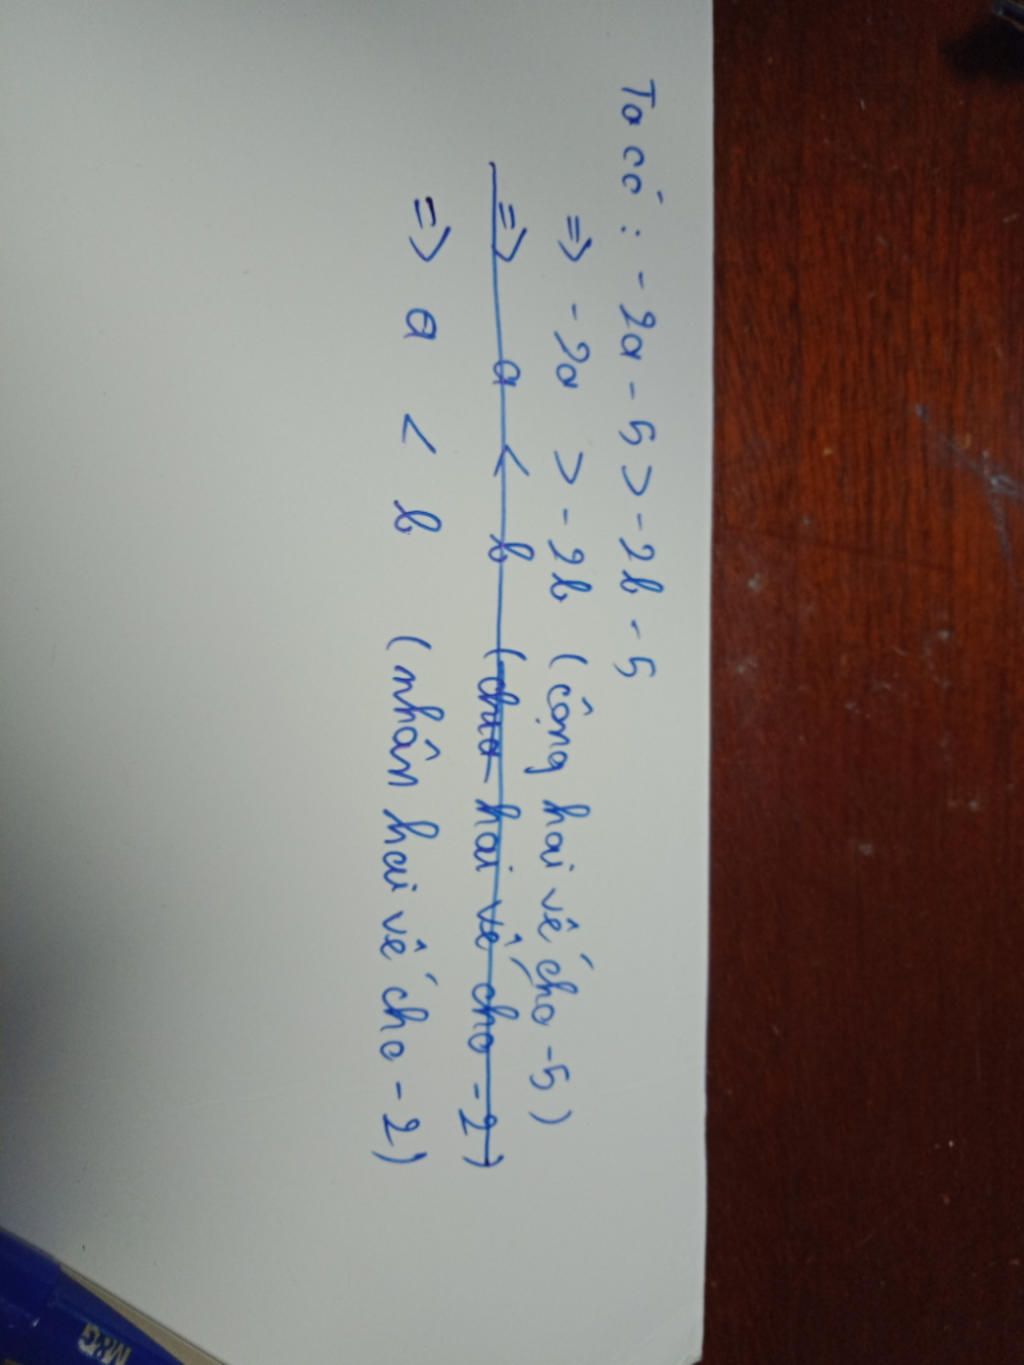 Ta có: -2a - 5 > -2b - 5
=> -2a > -2b (cộng hai vế cho -5)
=> a < b (chia hai vế cho -2)
=> a < b (nhân hai vế cho -2)
M&G